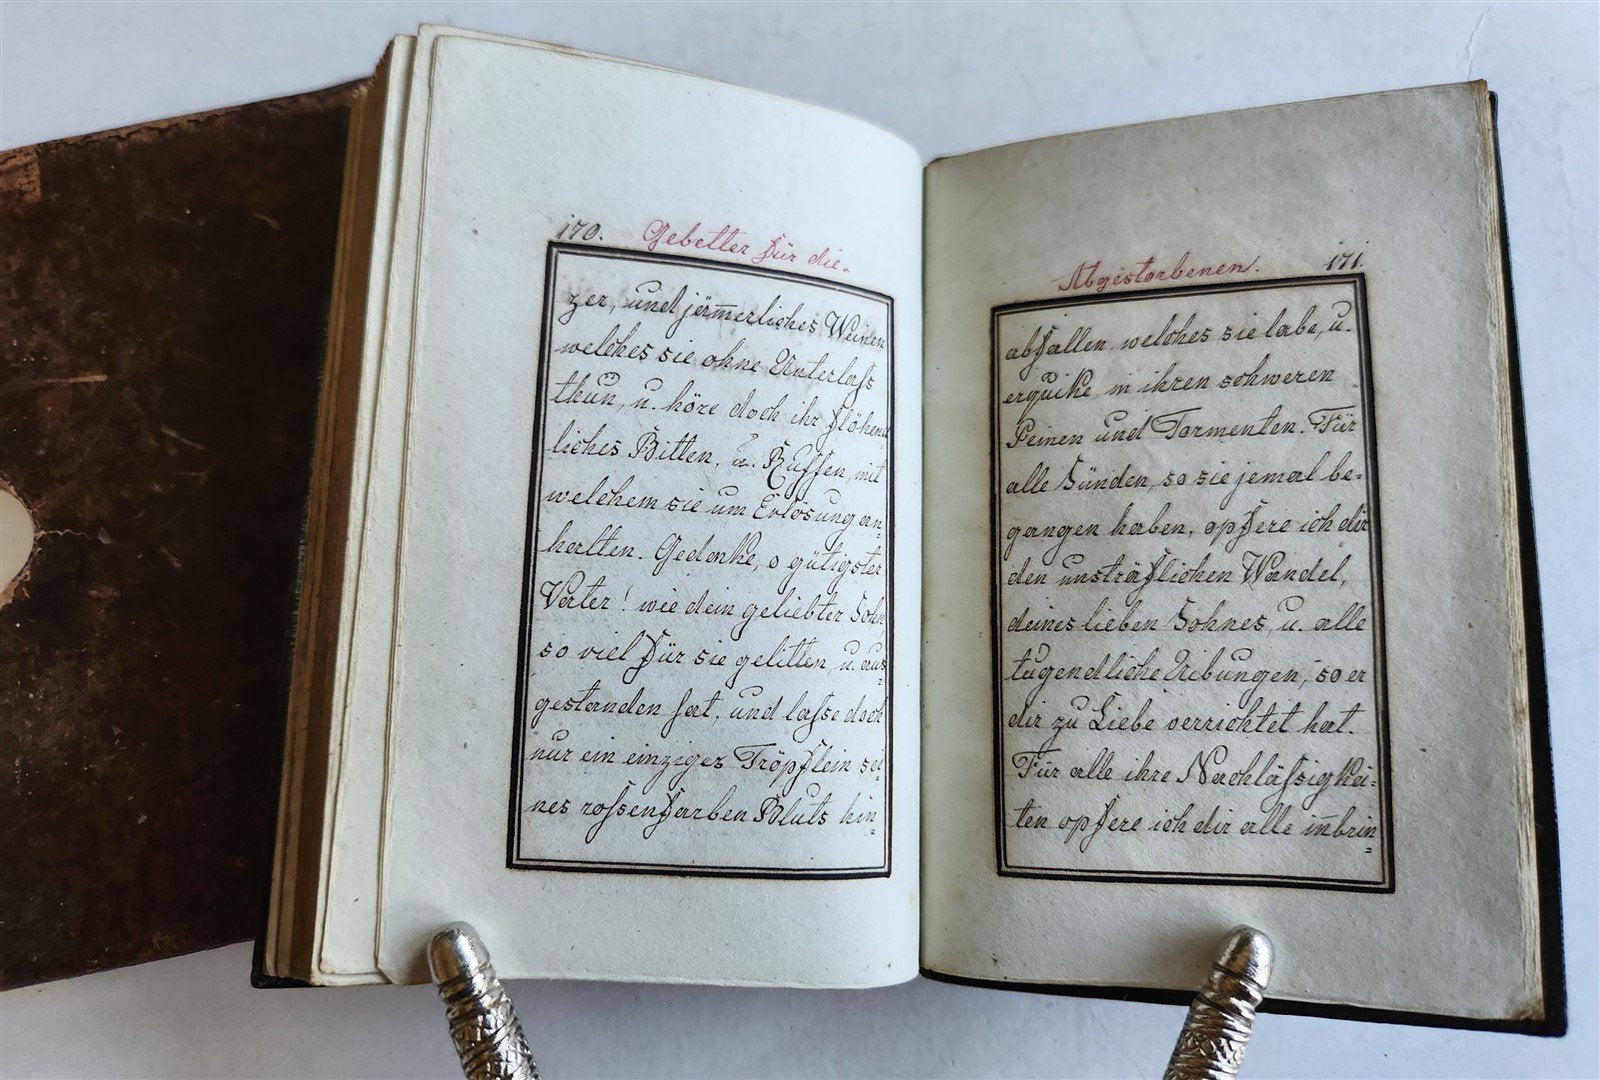 170. Gebetter für die-
zer, und jäm̄erliches Weinen
welches sie ohne Unterlaſs
thun, u. höre doch ihr flöhent
liches Bitten, u. Ruffen, mit
welchem sie um Erlösung an=
halten. Gedenke, o gütigster
Vatter! wie dein geliebter Sohn
so viel für sie gelitten, u. aus=
gestanden hat, und laſse doch
nur ein einziges Tröpflein sei=
nes roſsenfarben Bluts hin=
Abgestorbenen. 171.
abfallen, welches sie labe, u.
erquike in ihren schweren
Peinen und Tormenten. Für
alle Sünden, so sie jemal be=
gangen haben, opfere ich dir
den unsträflichen Wandel,
deines lieben Sohnes, u. alle
tugendliche Uibungen, so er
dir zu Liebe verrichtet hat.
Für alle ihre Nachläſsigkei=
ten opfere ich dir alle in̄brin=